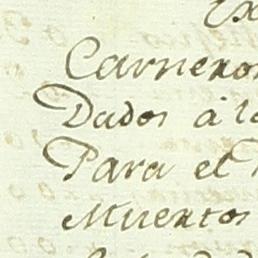 Ex
Carneros
Dados á la
Para el
Muertos